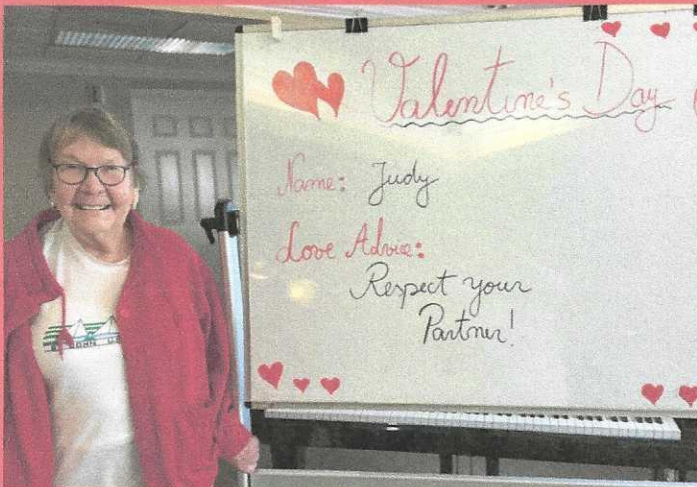 Valentine's Day
Name: Judy
Love Advice:
Respect your
Partner!